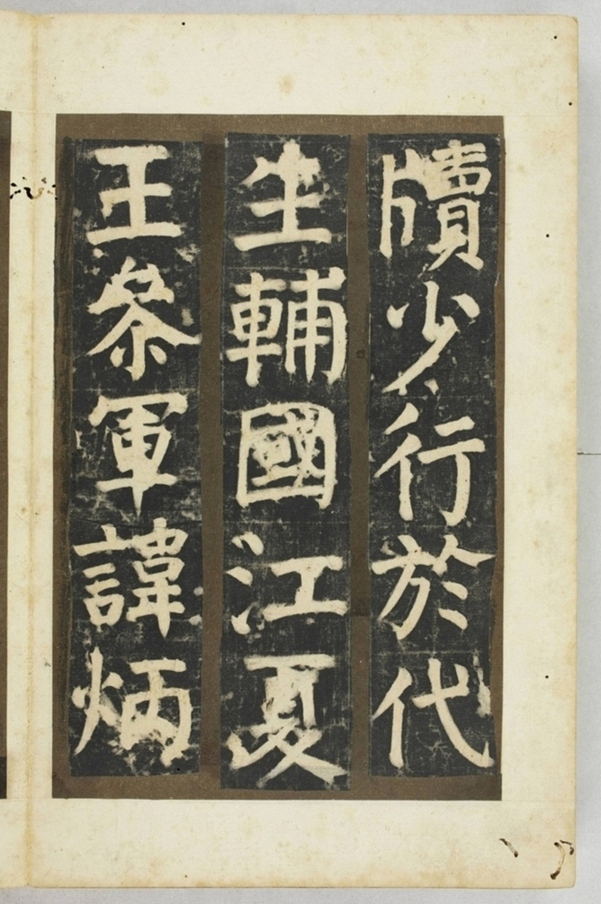 牘少行於代
生輔國江夏
王叅軍諱炳